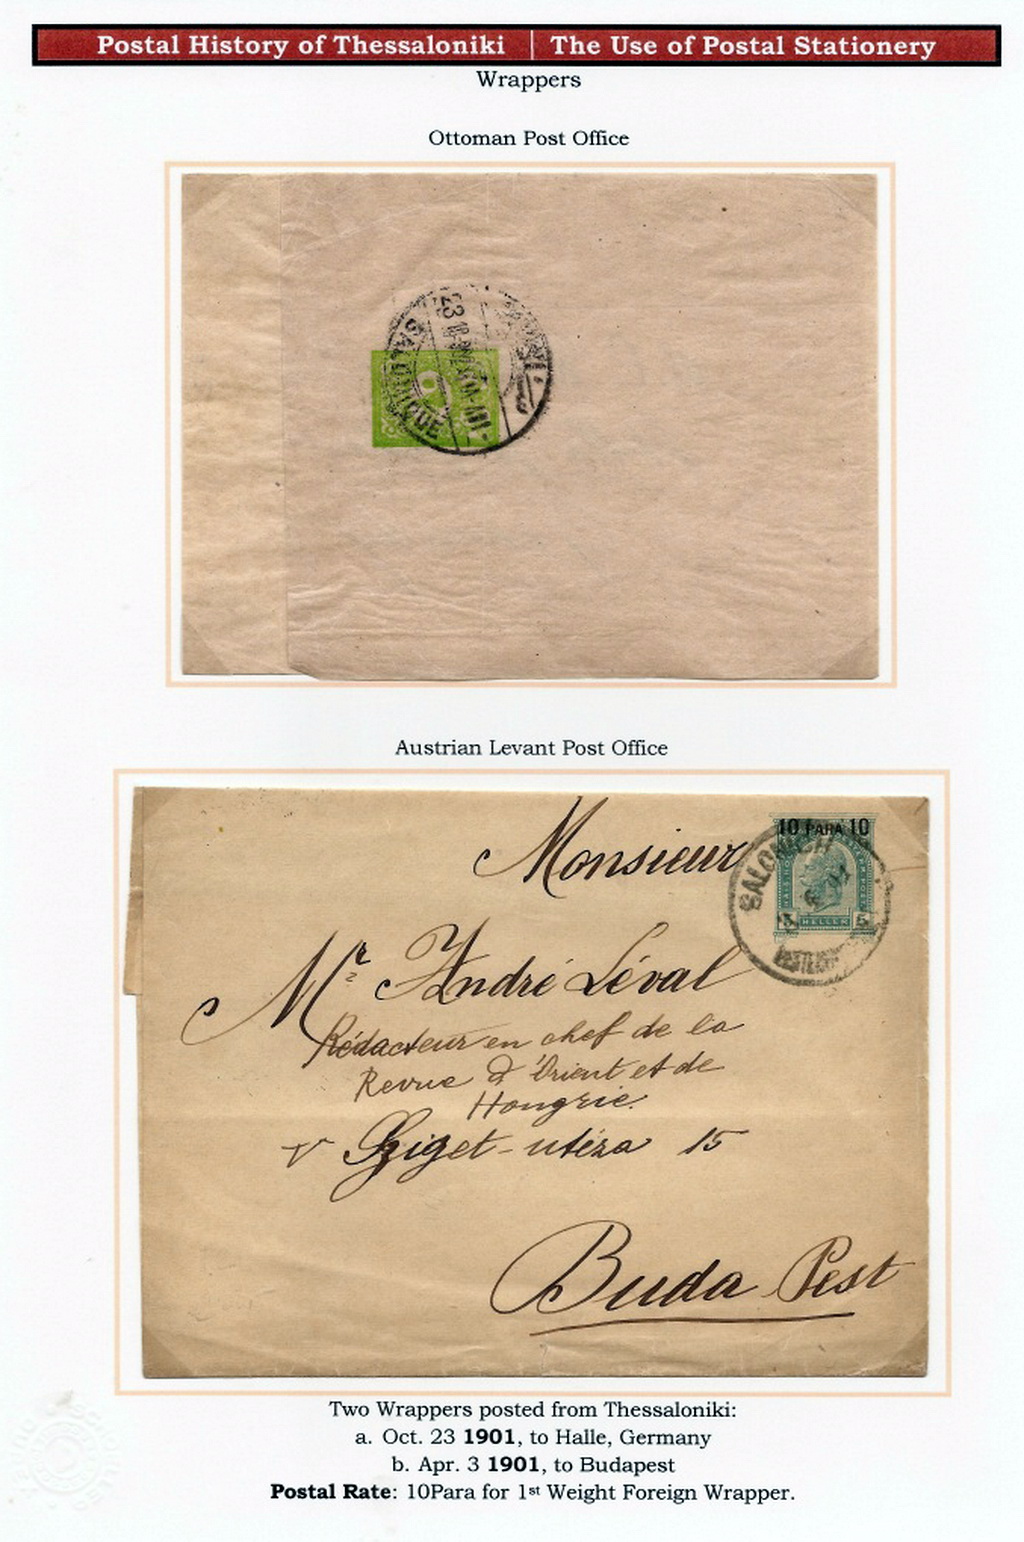 Postal History of Thessaloniki | The Use of Postal Stationery
Wrappers
Ottoman Post Office
23
SALONIQUE
Austrian Levant Post Office
10 PARA 10
SALONICH
5 HELLER 5
Monsieur
Mr. André Léval
Rédacteur en chef de la
Revue d'Orient et de
Hongrie.
V Sziget-utéza 15
Buda Pest
Two Wrappers posted from Thessaloniki:
a. Oct. 23 1901, to Halle, Germany
b. Apr. 3 1901, to Budapest
Postal Rate: 10Para for 1st Weight Foreign Wrapper.